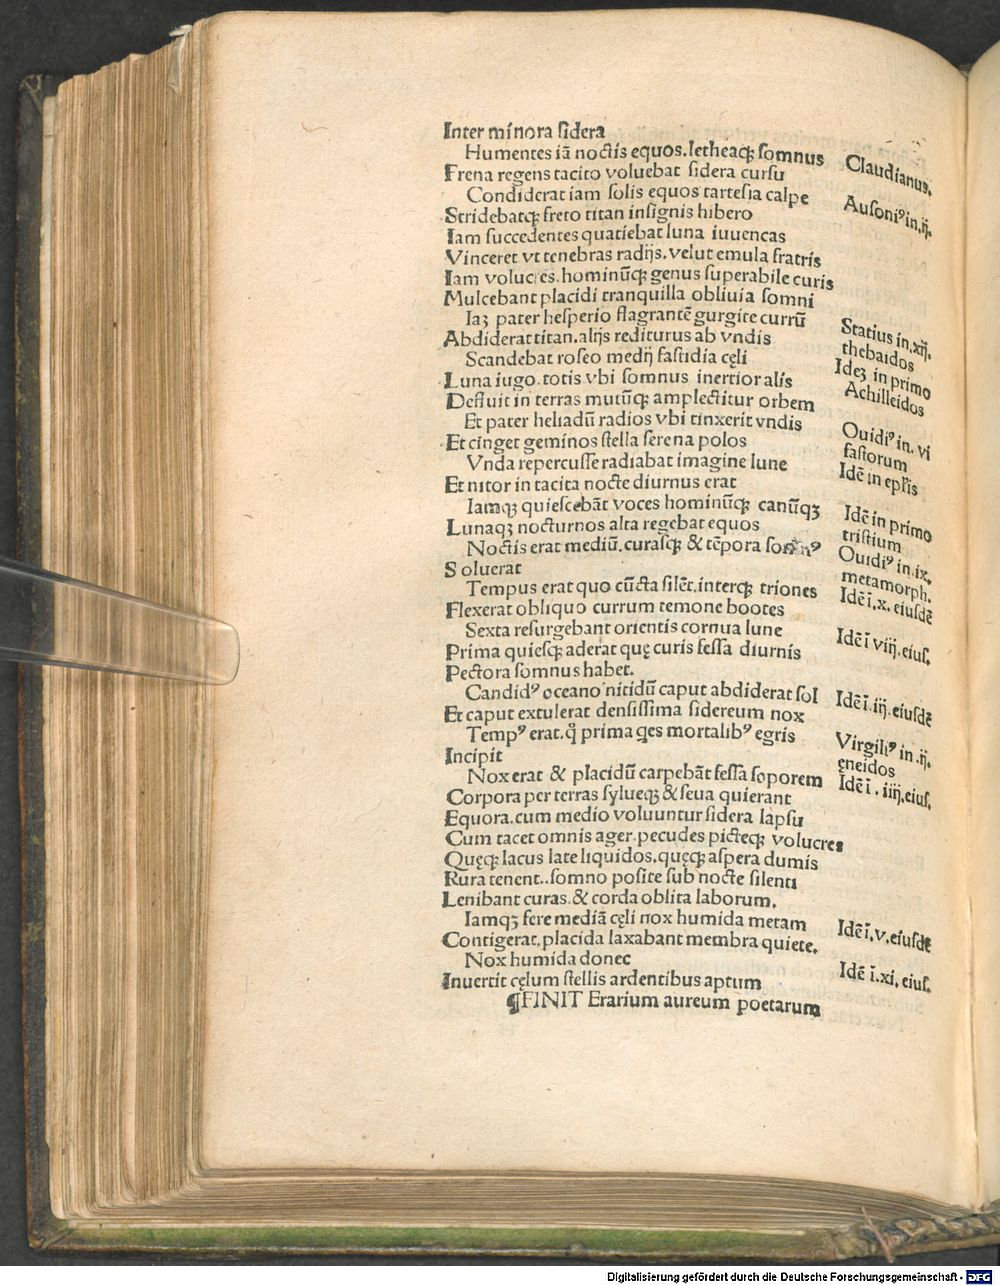 Inter minora sidera
Humentes iā noctis equos. letheaqꝫ somnus
Claudianus.
Frena regens tacito voluebat sidera cursu
Condiderat iam solis equos tartesia calpe
Ausoniꝰ in. ij.
Stridebatqꝫ freto titan insignis hibero
Iam succedentes quatiebat luna iuuencas
Vinceret vt tenebras radijs. velut emula fratris
Iam volucres. hominūqꝫ genus superabile curis
Mulcebant placidi tranquilla obliuia somni
Iaꝫ pater hesperio flagrantē gurgite currū
Abdiderat titan. alijs rediturus ab vndis
Statius in. xij.
thebaidos
Scandebat roseo medij fastidia cęli
Ideꝫ in primo
Achilleidos
Luna iugo. totis vbi somnus inertior alis
Defluit in terras mutūqꝫ amplectitur orbem
Et pater heliadū radios vbi tinxerit vndis
Ouidiꝰ in. vi
fastorum
Et cinget geminos stella serena polos
Vnda repercusse radiabat imagine lune
Idē in epłis
Et nitor in tacita nocte diurnus erat
Iamqꝫ quiescebāt voces hominūqꝫ canūqꝫ
Idē in primo
tristium
Lunaqꝫ nocturnos alta regebat equos
Noctis erat mediū. curasqꝫ & tēpora somnꝰ
Ouidiꝰ in. ix.
metamorph.
Soluerat
Tempus erat quo cūcta silēt. interqꝫ triones
Idē ī. x. eiusdē
Flexerat obliquo currum temone bootes
Sexta resurgebant orientis cornua lune
Idē ī viij. eius.
Prima quiesqꝫ aderat quę curis fessa diurnis
Pectora somnus habet.
Candidꝰ oceano nitidū caput abdiderat sol
Idē ī. iij. eiusdē
Et caput extulerat densissima sidereum nox
Tempꝰ erat. q̊ prima q̇es mortalibꝰ egris
Virgiliꝰ in. ij.
ęneidos
Incipit
Nox erat & placidū carpebāt fessa soporem
Idē ī. iiij. eius.
Corpora per terras sylueqꝫ & seua quierant
Equora. cum medio voluuntur sidera lapsu
Cum tacet omnis ager. pecudes picteqꝫ volucres
Quęqꝫ lacus late liquidos. quęqꝫ aspera dumis
Rura tenent.. somno posite sub nocte silenti
Lenibant curas. & corda oblita laborum.
Iamqꝫ fere mediā cęli nox humida metam
Idē ī. v. eiusdē
Contigerat. placida laxabant membra quiete.
Nox humida donec
Idē ī. xi. eius.
Inuertit cęlum stellis ardentibus aptum
¶FINIT Erarium aureum poetarum
Digitalisierung gefördert durch die Deutsche Forschungsgemeinschaft - DFG